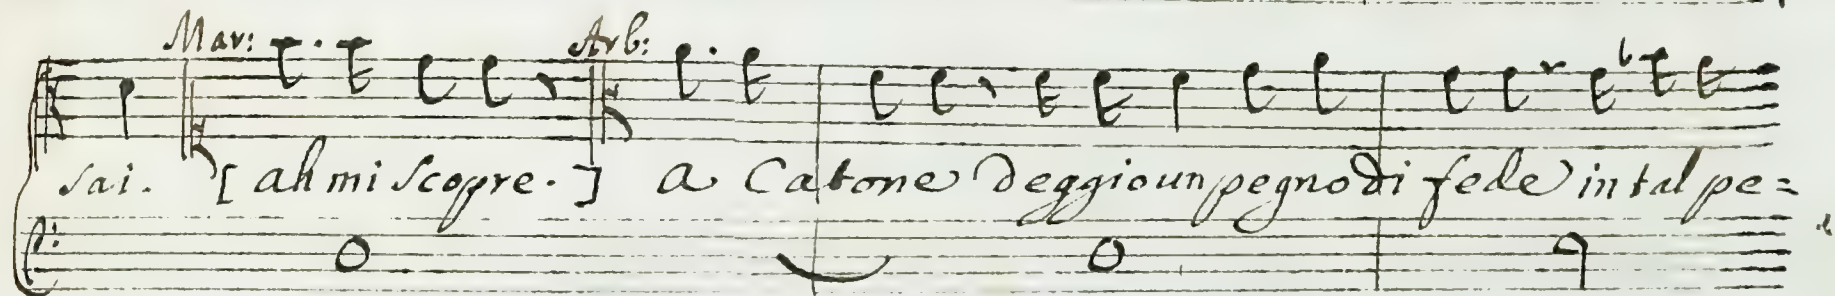 Mar: Arb:
sai. [ah mi scopre.] a Catone deggio un pegno di fede in tal pe=